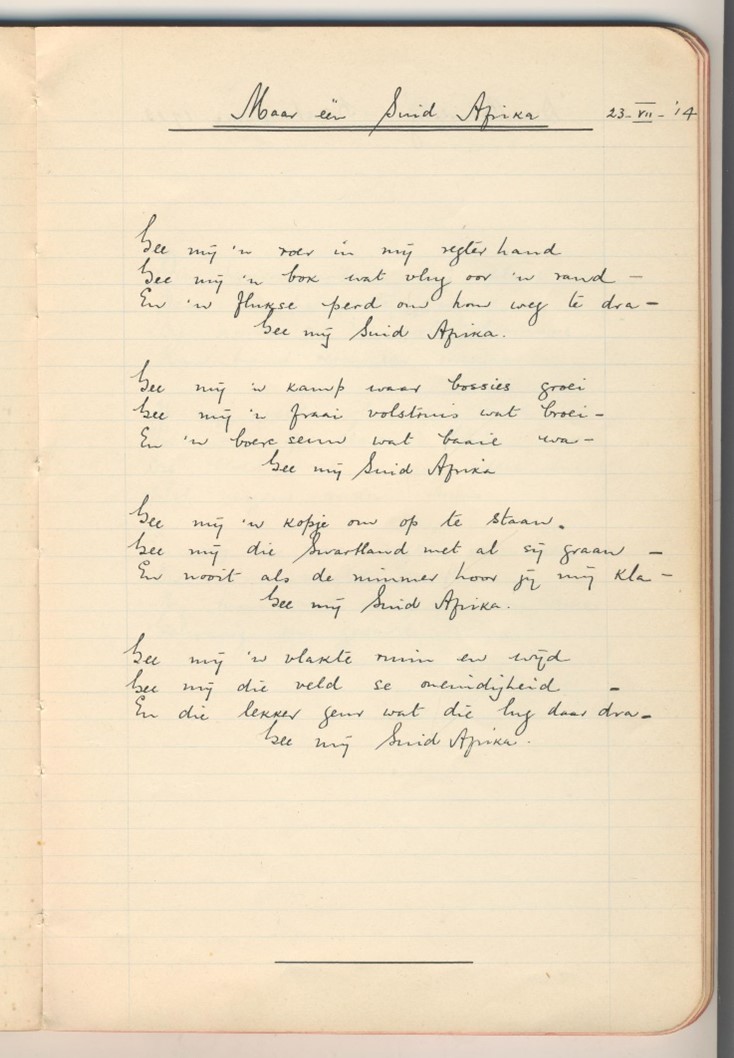 Maar één Suid Afrika 23-VII-'14
Gee mÿ 'n roer in mÿ regterhand
Gee mÿ 'n bok wat vlug oor 'n rand –
En 'n flukse perd om hom weg te dra –
Gee mÿ Suid Afrika.
Gee mÿ 'n kamp waar bossies groei
Gee mÿ 'n fraai volstruis wat broei –
En 'n boere seun wat baaie wa –
Gee mÿ Suid Afrika
Gee mÿ 'n kopje om op te staan.
Gee mÿ die Swartland met al sÿ graan –
En nooit als de nimmer hoor jÿ mÿ kla –
Gee mÿ Suid Afrika.
Gee mÿ 'n vlakte ruim en wÿd
Gee mÿ die veld se oneindigheid –
En die lekker geur wat die lug daar dra –
Gee mÿ Suid Afrika.